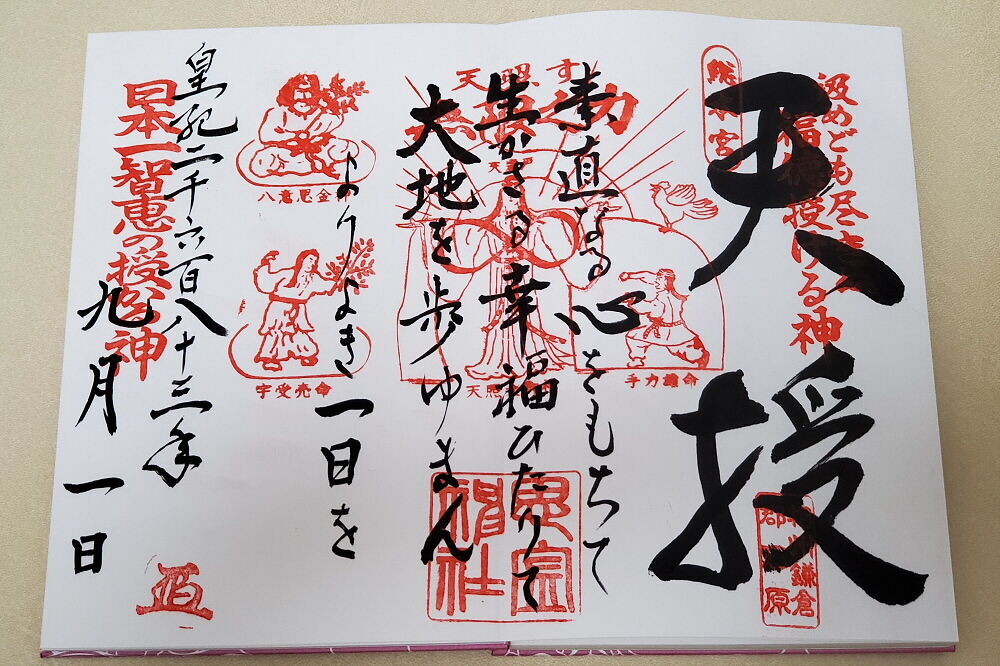 天授
素直なる心をもちて
生かさる幸福ひたりて
大地を歩ゆまん
よりよき一日を
皇紀二千六百八十三年
九月一日
汲めども尽
福徳授ける神
総本宮
鎌倉
郡 原
手力雄命
天照
天照す
八意思金
宇受売命
日本一智恵の授かる神
思金神社